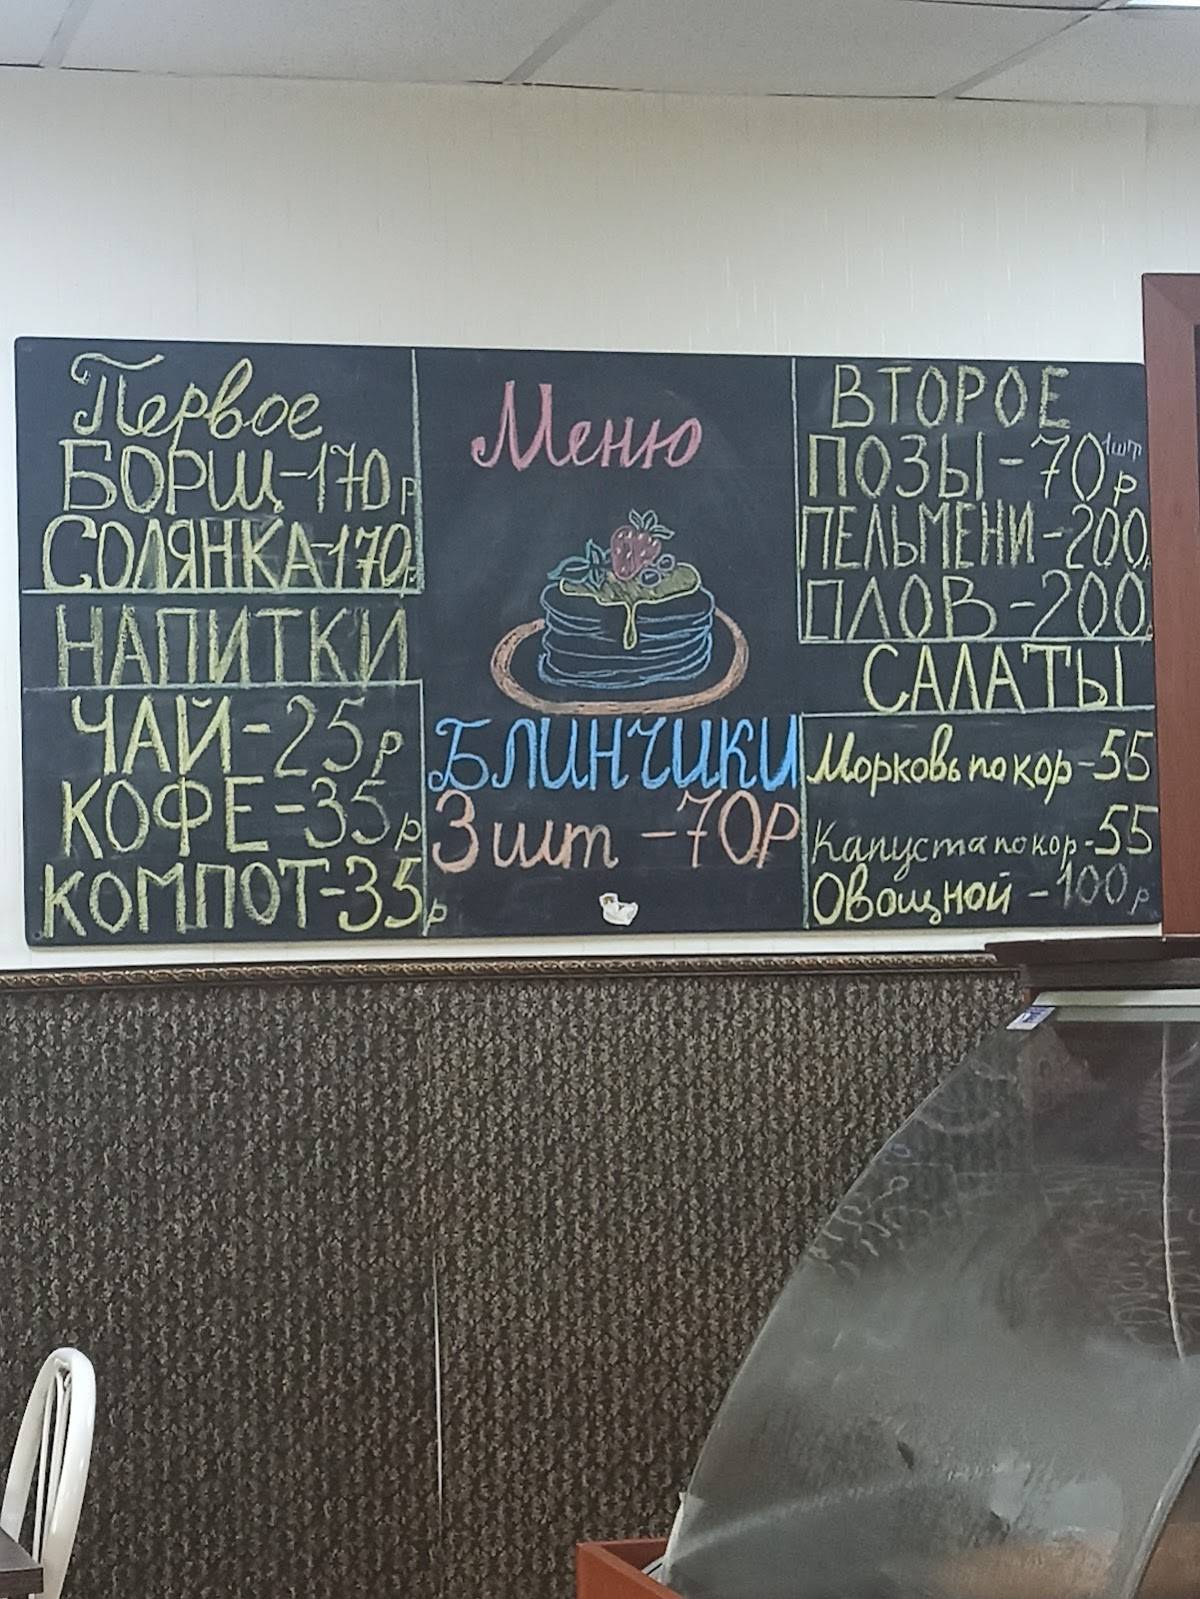 Первое
БОРЩ-170р
СОЛЯНКА-170р
НАПИТКИ
ЧАЙ-25р
КОФЕ-35р
КОМПОТ-35р
Меню
БЛИНЧИКИ
3 шт -70р
ВТОРОЕ
ПОЗЫ-70р 1шт
ПЕЛЬМЕНИ-200
ПЛОВ-200
САЛАТЫ
Морковь по кор-55
Капуста по кор-55
Овощной-100р